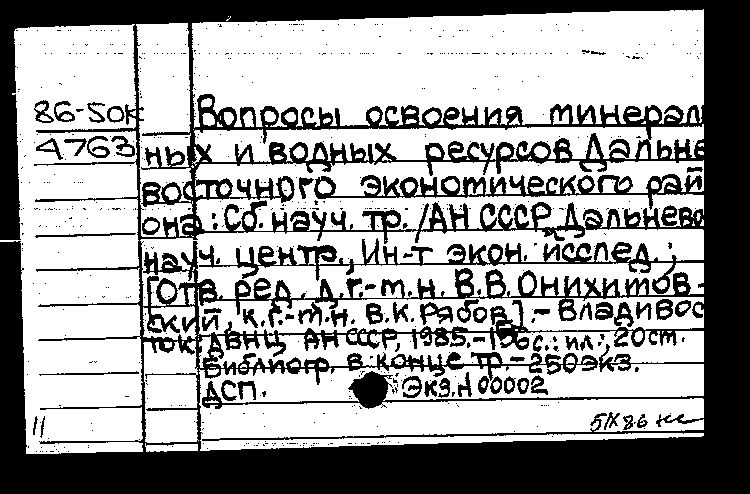 86-50к Вопросы освоения минераль
4763 ных и водных ресурсов Дальне
восточного экономического рай
она: Сб. науч. тр. / АН СССР, Дальнево
науч. центр., Ин-т экон. исслед.;
[Отв. ред. д.г.-м.н. В.В. Онихимов-
ский, к.г.-м.н. В.К. Рябов]. - Владивос
ток: ДВНЦ АН СССР, 1985. - 156 с.: ил.; 20 ст.
Библиогр. в конце тр. - 250 экз.
ДСП. Экз. N 00002
11 5IX86